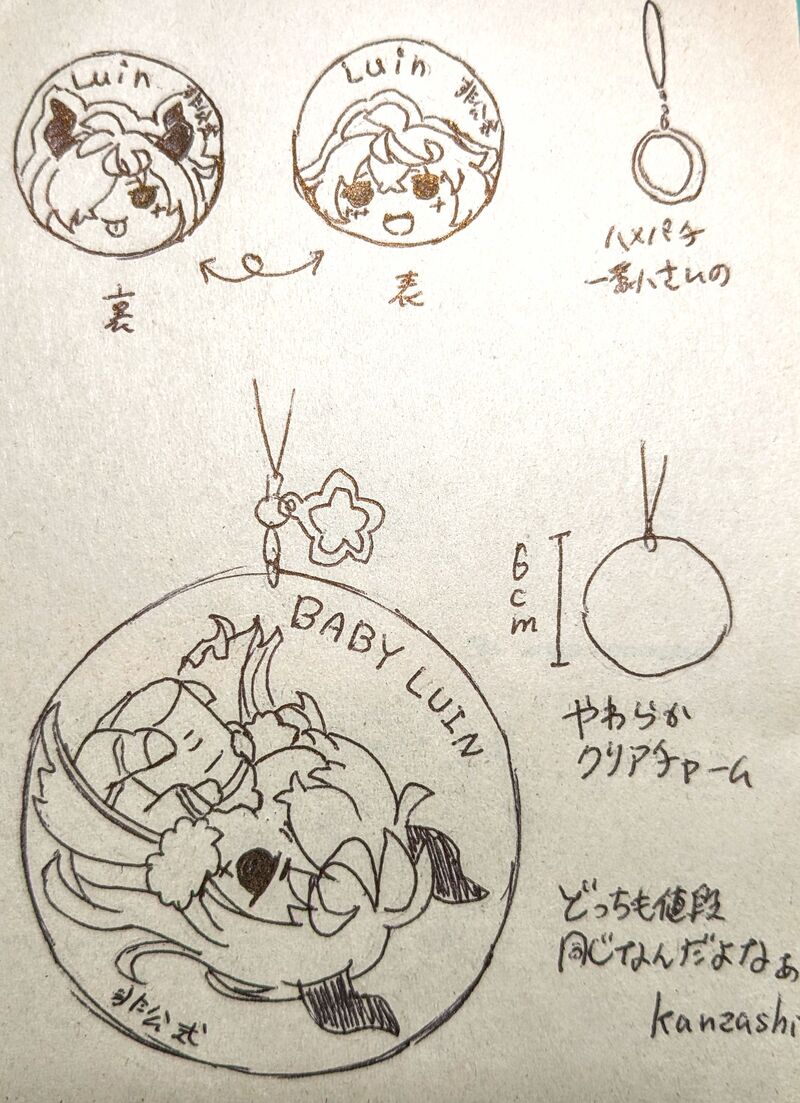 Luin
非公式
Luin
非公式
裏
表
ハメパチ
一番小さいの
BABY LUIN
非公式
6cm
やわらか
クリアチャーム
どっちも値段
同じなんだよなぁ
kanzashi